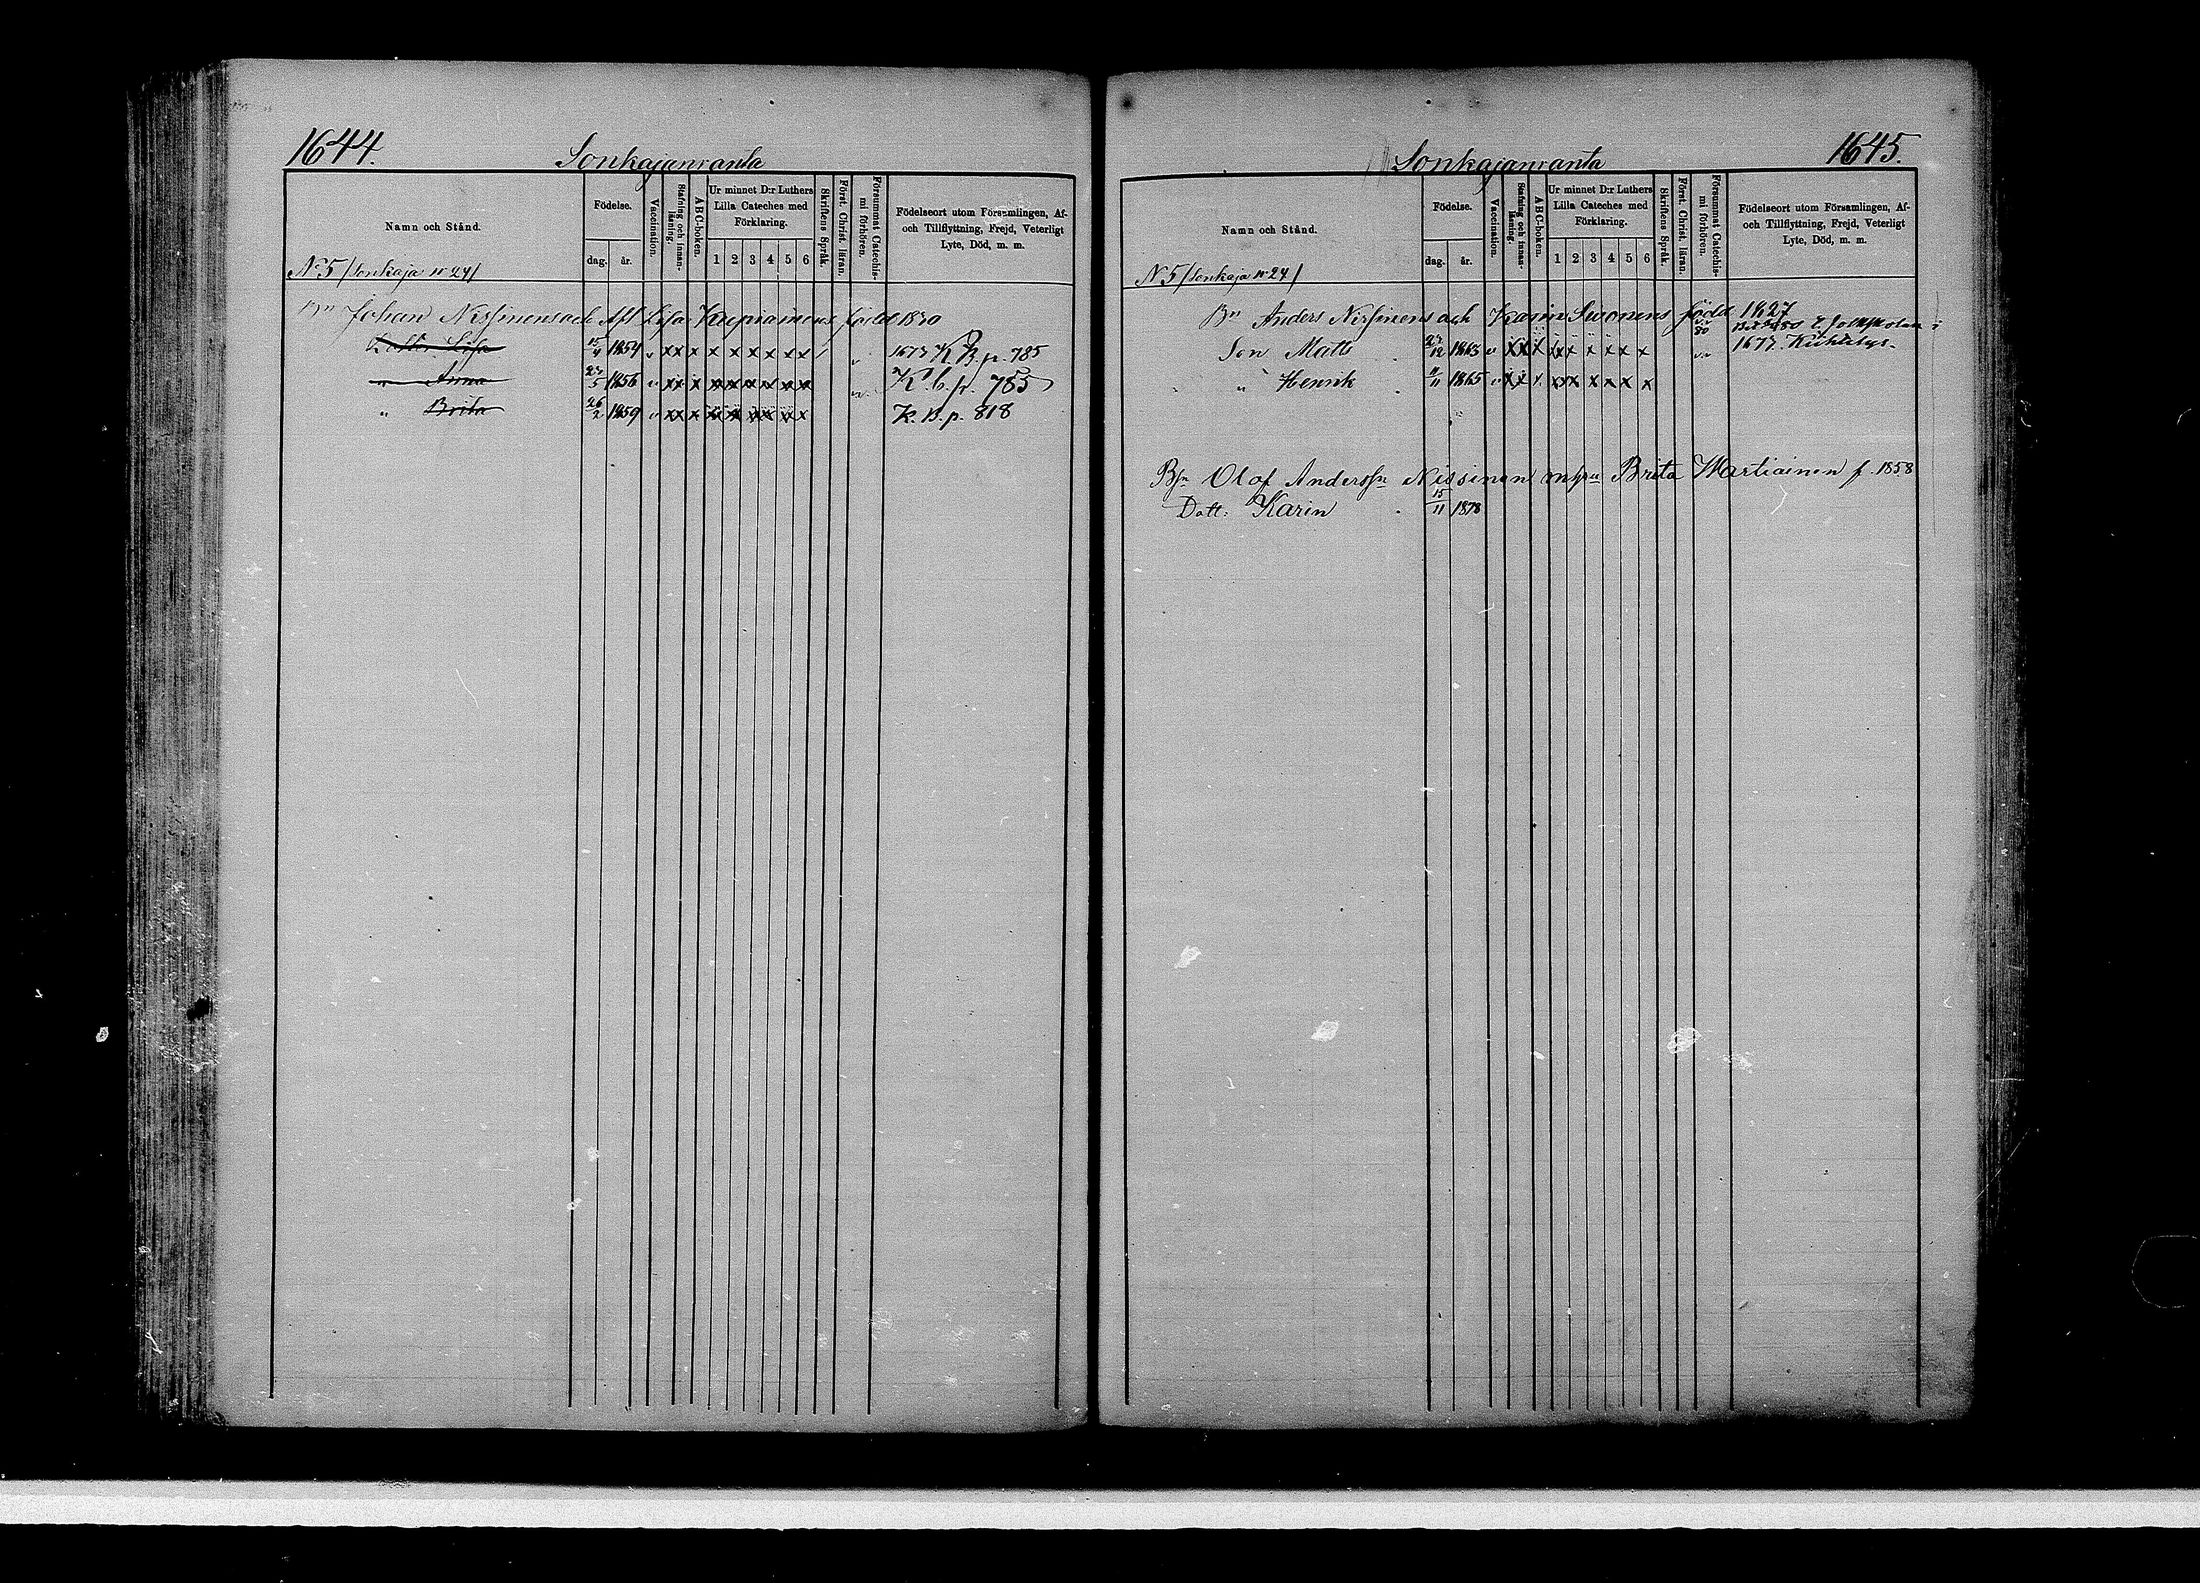 1644.
Sonkajanranta
Namn och Stånd.
Födelse.
dag.
år.
Vaccination.
Stafning och innan-
läsning.
ABC-boken.
Ur minnet D:r Luthers
Lilla Cateches med
Förklaring.
1 2 3 4 5 6
Skriftens Språk.
Först. Christ. läran.
Försummat Catechis-
mi förhören.
Födelseort utom Församlingen, Af-
och Tillflyttning, Frejd, Veterligt
Lyte, Död, m. m.
No 5 /Sonkaja no 24/
Bn Johan Nissinens och Afl Lisa Kupiainens född 1830
Dotter Lisa 15/4 1854 v xx x x x x x x x 1673 K B. p. 785
" Anna 27/5 1856 v xx x xx xx xx K. b. p. 785
" Brita 26/2 1859 v xx x K. B. p. 818
1645.
Sonkajanranta
Namn och Stånd.
Födelse.
dag.
år.
Vaccination.
Stafning och innan-
läsning.
ABC-boken.
Ur minnet D:r Luthers
Lilla Cateches med
Förklaring.
1 2 3 4 5 6
Skriftens Språk.
Först. Christ. läran.
Försummat Catechis-
mi förhören.
Födelseort utom Församlingen, Af-
och Tillflyttning, Frejd, Veterligt
Lyte, Död, m. m.
N 5 /Sonkaja no 24/
Bn Anders Nissinens och Karin Simonens född 1827
Son Matts 27/12 1863 v xx x 1677.
" Henrik 11/11 1865 v xx x
Bsn Olof Anderssn Nissinen m hu Brita Martiainen f. 1858
Dott: Karin 15/11 1878